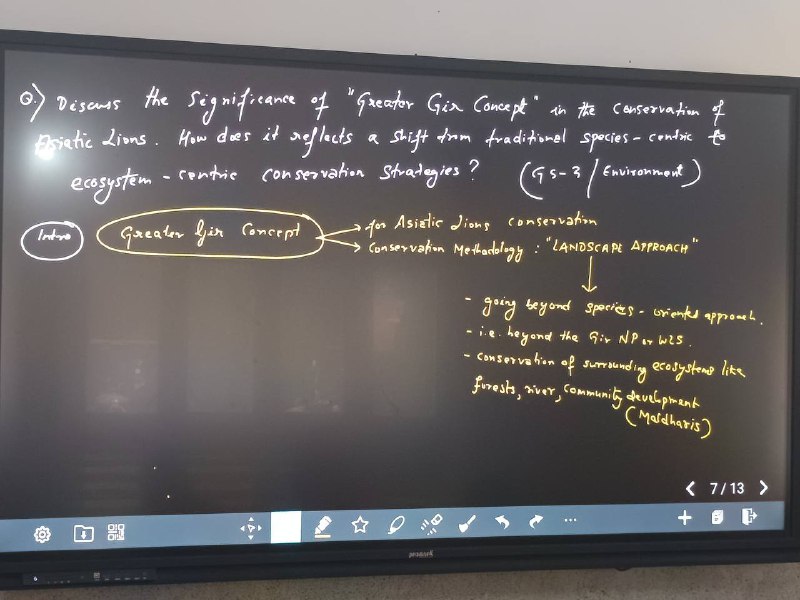 Q.) Discuss the significance of "Greater Gir Concept" in the conservation of
Asiatic Lions. How does it reflects a shift from traditional species-centric to
ecosystem-centric conservation strategies? (GS-3/Environment)
Intro
Greater Gir Concept
→ for Asiatic Lions conservation
→ Conservation Methodology : "LANDSCAPE APPROACH"
- going beyond species-oriented approach.
- i.e. beyond the Gir NP or WLS.
- conservation of surrounding ecosystems like
forests, river, community development
(Maldharis)
< 7/13 >